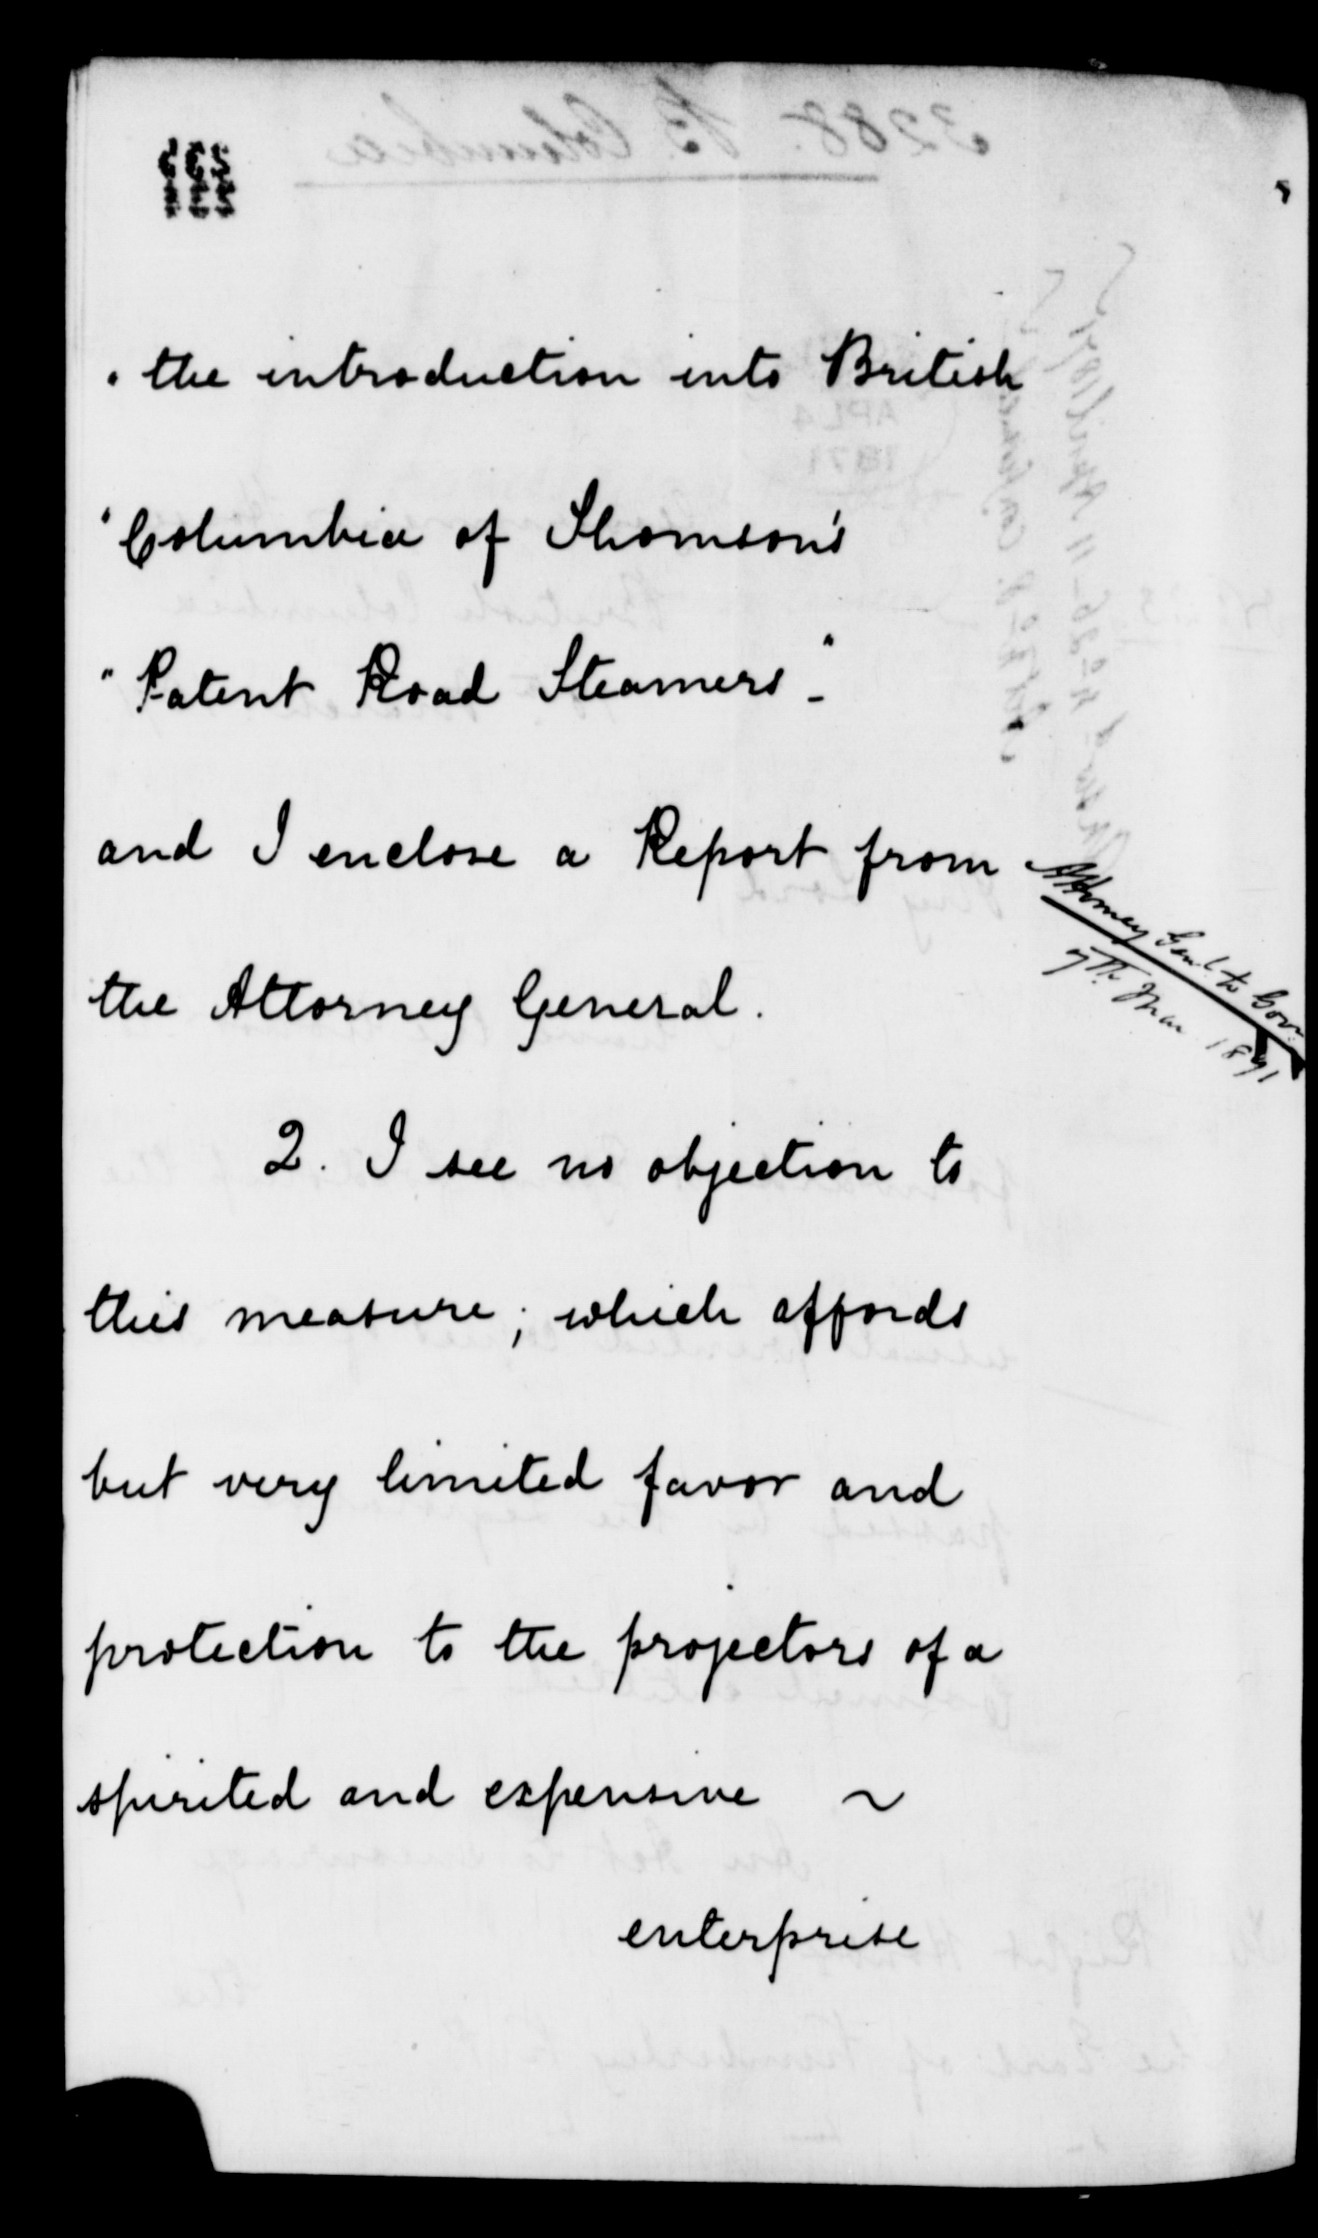 " the introduction into British
" Columbia of Thomson's
" Patent Road Steamers "-
and I enclose a Report from
the Attorney General.
Attorney Genl. to Gov.
7th. Mar 1871
2. I see no objection to
this measure; which affords
but very limited favor and
protection to the projectors of a
spirited and expensive ~
enterprise